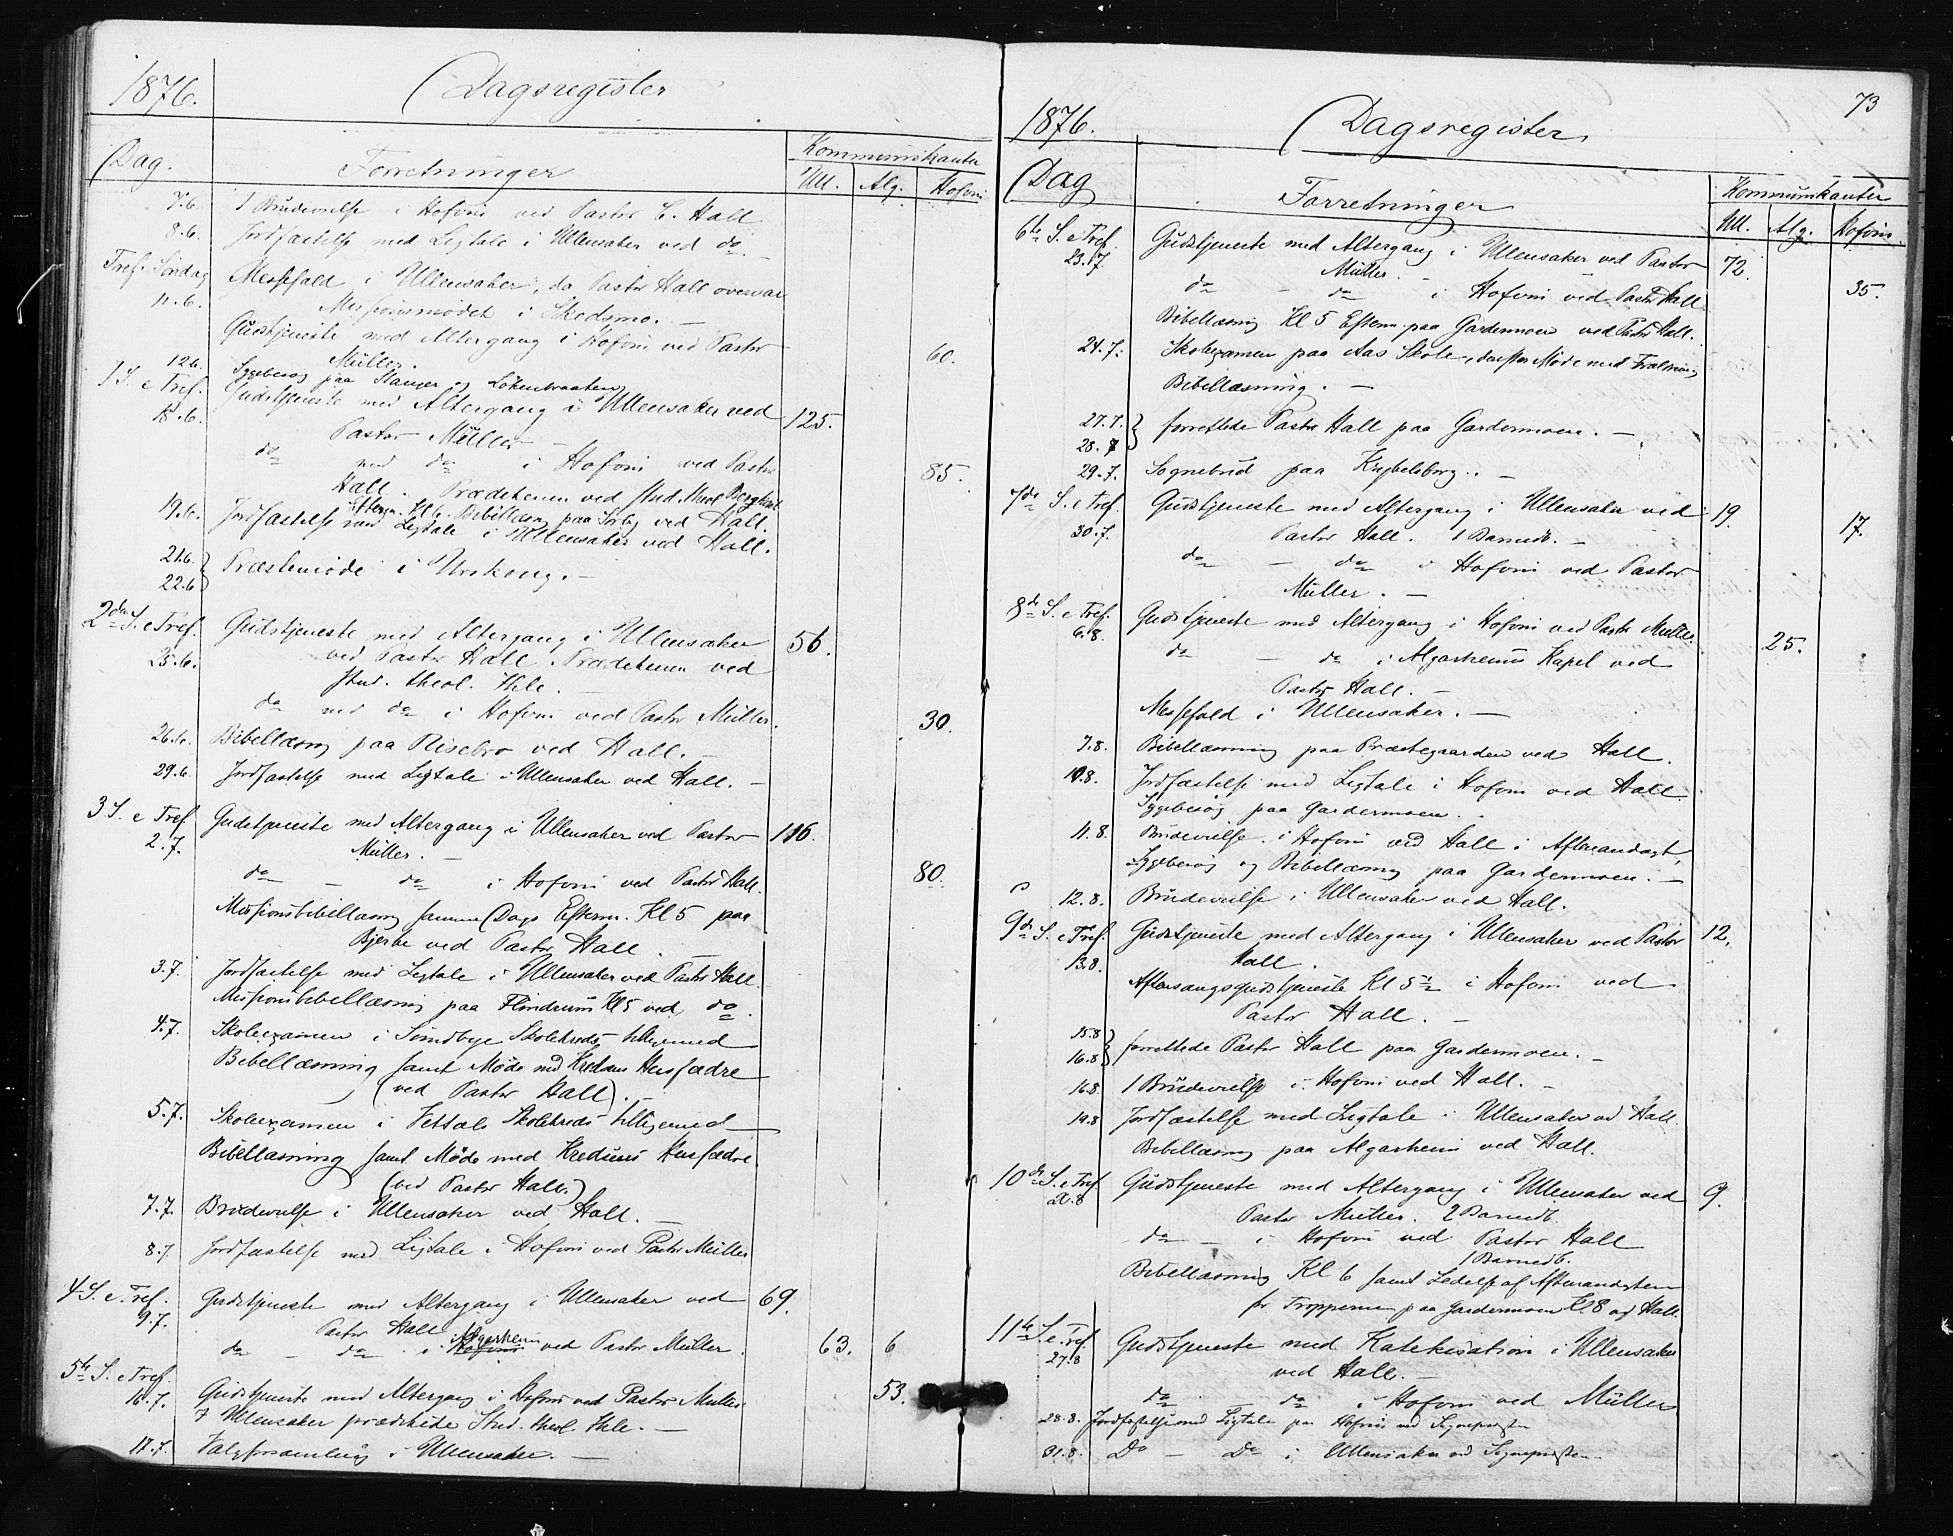 1876.
Dagsregister
Dag.
Forretninger
Kommunikanter
Ull. Alg. Hofvin
7.6. 1 Brudevielse i Hofvin ved Pastor C. Hall
8.6. Jordfæstelse med Ligtale i Ullensaker ved do
Tref. Söndag Messefald i Ullensaker, da Pastor Hall overvar
11.6. Missionsmödet i Skedsmo. —
Gudstjeneste med Altergang i Hofvin ved Pastor
Müller. 60.
12.6. Sygebesög paa Stanger og Lökenbraaten
1 S. e Tref. Gudstjeneste med Altergang i Ullensaker ved 125.
18.6. Pastor Müller —
do med do i Hofvin ved Pastor 85.
Hall. Prædikenen ved Stud. theol.
Efterm. Kl 6. Bibellæsn paa Sörby ved Hall.
19.6. Jordfæstelse med Ligtale i Ullensaker ved Hall.
21.6.
22.6 } Præstemöde i Urskoug. —
2den S. e Tref. Gudstjeneste med Altergang i Ullensaker 56.
25.6. ved Pastor Hall. Prædikenen ved
Stud. theol. Ihle. —
do med do i Hofvin ved Pastor Müller. 30.
26.6. Bibellæsng paa Risebro ved Hall. —
29.6. Jordfæstelse med Ligtale i Ullensaker ved Hall. —
3 S. e Tref Gudstjeneste med Altergang i Ullensaker ved Pastor 116.
2.7. Müller. —
do — do i Hofvin ved Pastor Hall. 80.
Missionsbibellæsng samme Dags Efterm. Kl 5 paa
Bjerke ved Pastor Hall. —
3.7. Jordfæstelse med Ligtale i Ullensaker ved Pastor Hall.
Missionsbibellæsning paa Flindrum Kl 5 ved do.
4.7. Skoleexamen i Sundbye Skolekreds tilligemed
Bibellæsning samt Möde med Kredsens Husfædre
(ved Pastor Hall). —
5.7. Skoleexamen i Vettals Skolekreds tilligemed
Bibellæsning samt Möde med Kredsens Husfædre
(ved Pastor Hall.)
7.7. Brudevielse i Ullensaker ved Hall. —
8.7. Jordfæstelse med Ligtale i Hofvin ved Pastor Müller
4 S. e. Tref. Gudstjeneste med Altergang i Ullensaker ved 69.
9.7. Pastor Hall
Algarheim
do — do i Hofvin ved Pastor Müller. 63. 6
5te S. e Tref.
16.7. Gudstjeneste med Altergang i Hofvin ved Pastor Müller. 53.
I Ullensaker prædikede Stud. theol. Ihle. —
17.7. Valgforsamling i Ullensaker. —
73
1876.
Dagsregister
Dag
Forretninger
Kommunikanter
Ull. Alg. Hofvin.
6te S. e Tref. Gudstjeneste med Altergang i Ullensaker ved Pastor 72.
23.7. Müller. —
do — do i Hofvin ved Pastor Hall 35.
Bibellæsning Kl 5 Efterm. paa Gardermoen ved Pastor Hall.
24.7. Skoleexamen paa Aas Skole, derefter Möde med
Bibellæsning. —
27.7.
28.7 } forrettede Pastor Hall paa Gardermoen. —
29.7. Sognebud paa Krybelsborg. —
7de S. e Tref. Gudstjeneste med Altergang i Ullensaker ved 19.
30.7. Pastor Hall. 1 Barnedb. — 17.
do — do i Hofvin ved Pastor
Müller. —
8de S. e Tref. Gudstjeneste med Altergang i Hofvin ved Pastor Müller.
6.8. do — do i Algarheims Kapel ved 25.
Pastor Hall. —
Messefald i Ullensaker. —
7.8. Bibellæsning paa Præstegaarden ved Hall.
10.8. Jordfæstelse med Ligtale i Hofvin ved Hall
Sygebesög paa Gardermoen.
11.8. Brudevielse i Hofvin ved Hall i Aftenandagt,
Sygebesög og Bibellæsng paa Gardermoen. —
12.8. Brudevielse i Ullensaker ved Hall.
9de S. e Tref. Gudstjeneste med Altergang i Ullensaker ved Pastor 12.
13.8. Hall.
Aftensangsgudstjeneste Kl 5 ½ i Hofvin ved
Pastor Hall. —
15.8
16.8 } forrettede Pastor Hall paa Gardermoen. —
16.8. 1 Brudevielse i Hofvin ved Hall. —
19.8 Jordfæstelse med Ligtale i Ullensaker ved Hall.
Bibellæsng paa Algarheim ved Hall.
10de S. e. Tref. Gudstjeneste med Altergang i Ullensaker ved 9.
20.8 Pastor Müller. 2 Barnedb.
do — i Hofvin ved Pastor Hall
1 Barnedb.
Bibellæsning Kl 6 samt Ledelse af Aftenandagten
for Tropperne paa Gardermoen Kl 8 ved Hall.
11te S. e. Tref Gudstjeneste med Katekisation i Ullensaker
27.8 ved Hall. —
do do i Hofvin ved Müller.
28.8. Jordfæstelse med Ligtale paa Hofvin ved Sognepræsten
31.8. Do — Do i Ullensaker ved Sognepræsten —